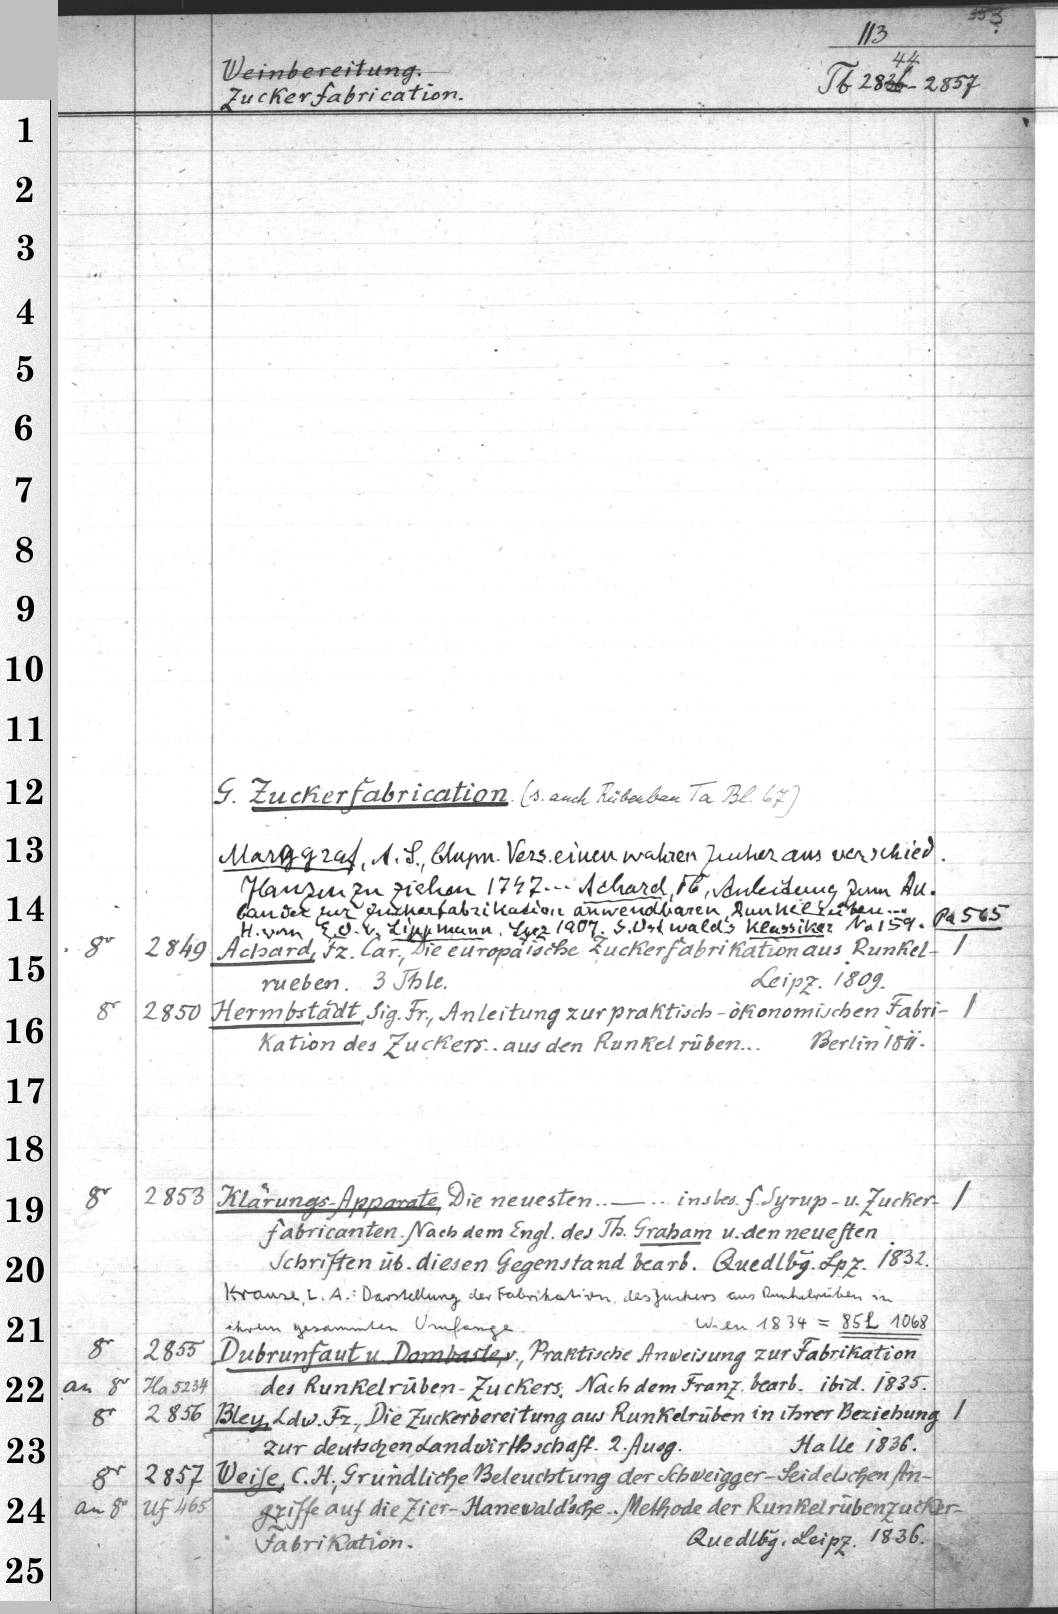 553
113
Weinbereitung.
44
Zuckerfabrication.
Tb 2836-2857
1
2
3
4
5
6
7
8
9
10
11
12
G. Zuckerfabrication. (s. auch Rübenbau Ta Bl. 67)
13
Marggraf, A. S., Chym. Vers. einen wahren Zucker aus verschied.
Pflanzen zu ziehen 1747... Achard, Anleitung zum An-
14
bau der zur Zuckerfabrikation anwendbaren Runkelrüben...
H. von E. O. v. Lippmann. Lpz 1907. S. Ostwald's Klassiker No 159.
Pa 565
8° 2849 Achard, Fz. Car., Die europäische Zuckerfabrikation aus Runkel- 1
15
rueben. 3 Thle. Leipz. 1809.
8° 2850 Hermbstädt, Sig. Fr., Anleitung zur praktisch-ökonomischen Fabri- 1
16
kation des Zuckers... aus den Runkelrüben... Berlin 1811.
17
18
8° 2853 Klärungs-Apparate, Die neuesten ... — ... insbes. f. Syrup- u. Zucker- 1
19
fabricanten. Nach dem Engl. des Th. Graham u. den neuesten
20
Schriften üb. diesen Gegenstand bearb. Quedlbg. Lpz. 1832.
Krause, L. A.: Darstellung der Fabrikation des Zuckers aus Runkelrüben in
21
ihrem gesammten Umfange. Wien 1834 = 85L 1068
8° 2855 Dubrunfaut u. Dombasle, v., Praktische Anweisung zur Fabrikation
22
an 8° Ha 5234 des Runkelrüben-Zuckers. Nach dem Franz. bearb. ibid. 1835.
8° 2856 Bley, Ldw. Fz., Die Zuckerbereitung aus Runkelrüben in ihrer Beziehung 1
23
zur deutschen Landwirthschaft. 2. Ausg. Halle 1836.
8° 2857 Weise, C. H., Gründliche Beleuchtung der Schweigger-Seidelschen An-
24
an 8° Uf 465 griffe auf die Zier-Hanewald'sche.. Methode der Runkelrübenzucker-
Fabrikation. Quedlbg. Leipz. 1836.
25